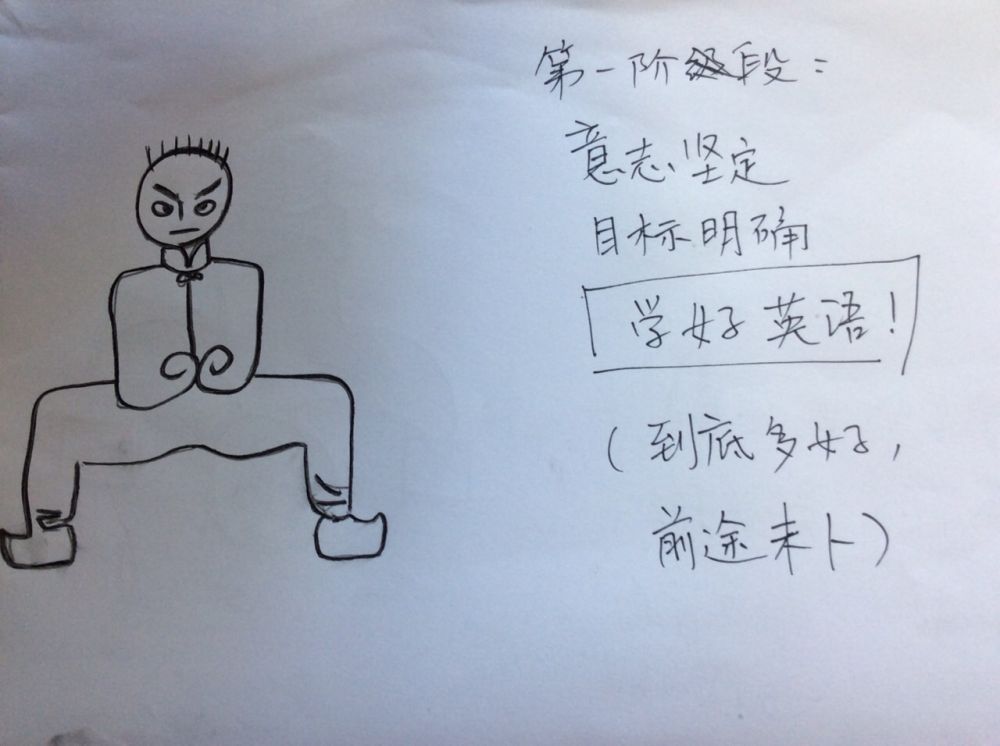 第一阶段：
意志坚定
目标明确
学好英语！
（到底多好，
前途未卜）